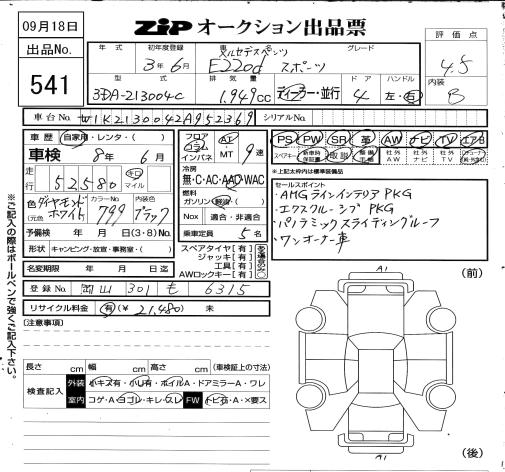 09月18日
ZIP オークション出品票
出品No.
541
年式 初年度登録 車名 グレード
3年6月 メルセデスベンツ E220d スポーツ
型式 排気量 ドア ハンドル
3DA-213004C 1,949cc ディーラー・並行 4 左・右
評価点
4.5
内装
B
車台No. W1K2130042A952369 シリアルNo.
車歴 自家用・レンタ・( )
車検 8年6月
走行 52580 キロ マイル
色(元色) ダイヤモンドホワイト カラーNo. 799 内装色 ブラック
予備検 年 月 日(3・8)No.
形状 キャンピング・放送・事務室・( )
名変期限 年 月 日迄
登録No. 岡山 301 も 6315
リサイクル料金 有(¥21,480) 未
フロア コラム インパネ AT MT 9速
冷房 無・C・AC・AAC・WAC
燃料 ガソリン・軽油・( )
Nox 適合・非適合
乗車定員 5名
スペアタイヤ[有]
ジャッキ[有]
工具[有]
AWロックキー[有]
PS PW SR 革 AW ナビ TV エアB
スペアキー 新車時保証書 取説 整備手帳 社外AW 社外ナビ 社外TV
※上記太枠内は標準装備品
セールスポイント
・AMGラインインテリアPKG
・エクスクルーシブPKG
・パノラミックスライディングルーフ
・ワンオーナー車
[注意事項]
長さ cm 幅 cm 高さ cm (車検証上の寸法)
検査記入 外装 小キズ有・小凹有・ホイルA・ドアミラーA・ワレ
室内 コゲ・A・ヨゴレ・キレ・スレ FW トビ石・A・×要ス
A1
(前)
A1
(後)
※ご記入の際はボールペンで強くご記入下さい。